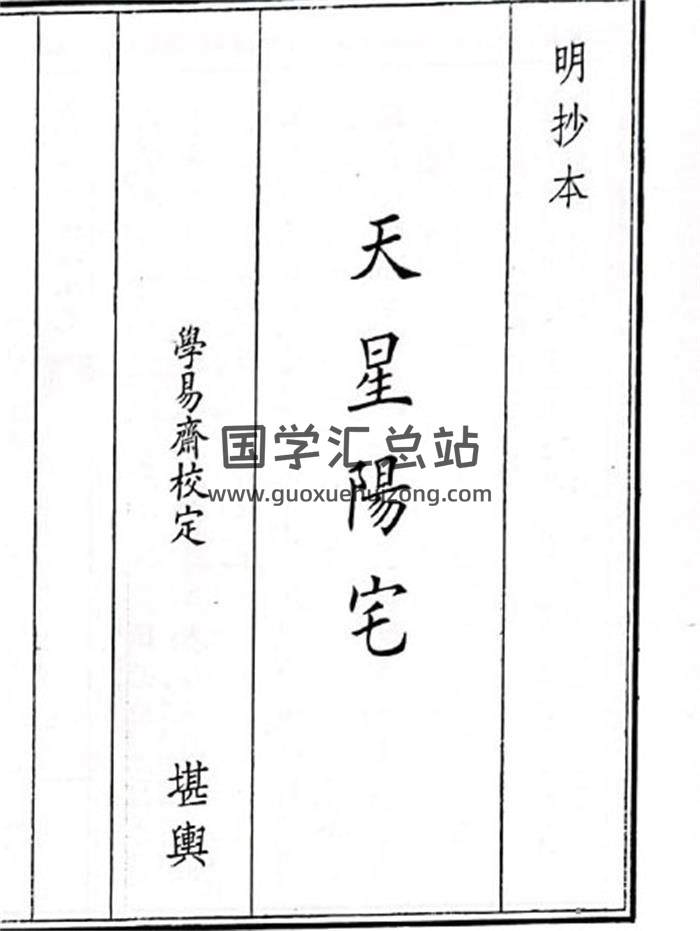 明抄本
天星陽宅
學易齋校定
堪輿
国学汇总站
www.guoxuehuizong.com